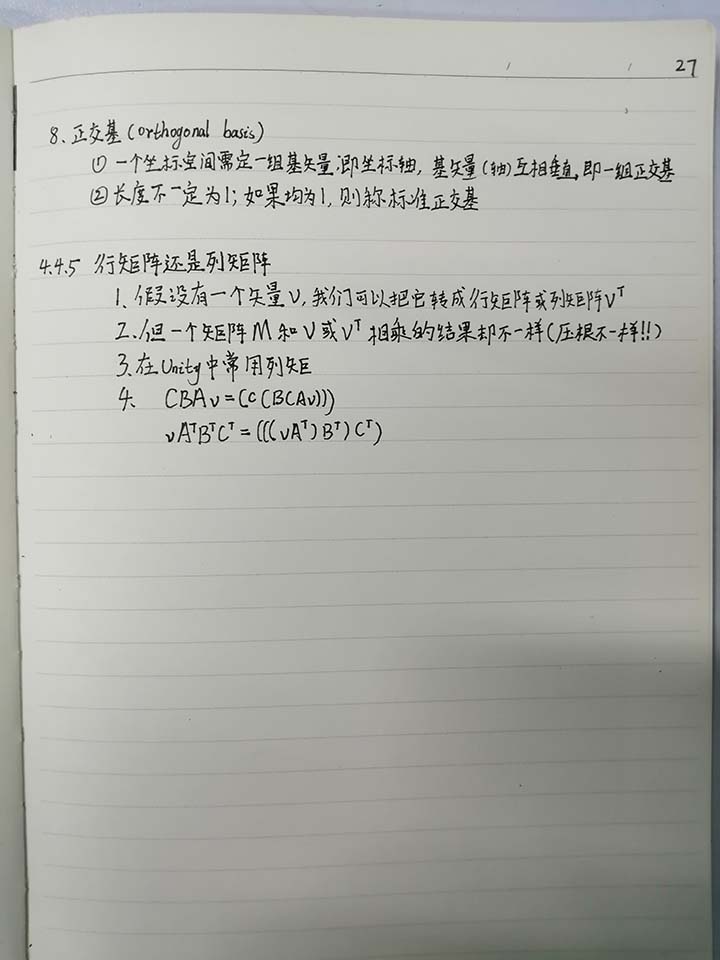 27
8、正交基(orthogonal basis)
① 一个坐标空间需定一组基矢量,即坐标轴, 基矢量(轴)互相垂直,即一组正交基
② 长度不一定为1; 如果均为1, 则称标准正交基
4.4.5 行矩阵还是列矩阵
1、假设有一个矢量v, 我们可以把它转成行矩阵或列矩阵vᵀ
2、但一个矩阵M和v或vᵀ相乘的结果却不一样(压根不一样!!)
3、在Unity中常用列矩
4、 CBAv=(C(B(Av)))
vAᵀBᵀCᵀ=(((vAᵀ)Bᵀ)Cᵀ)